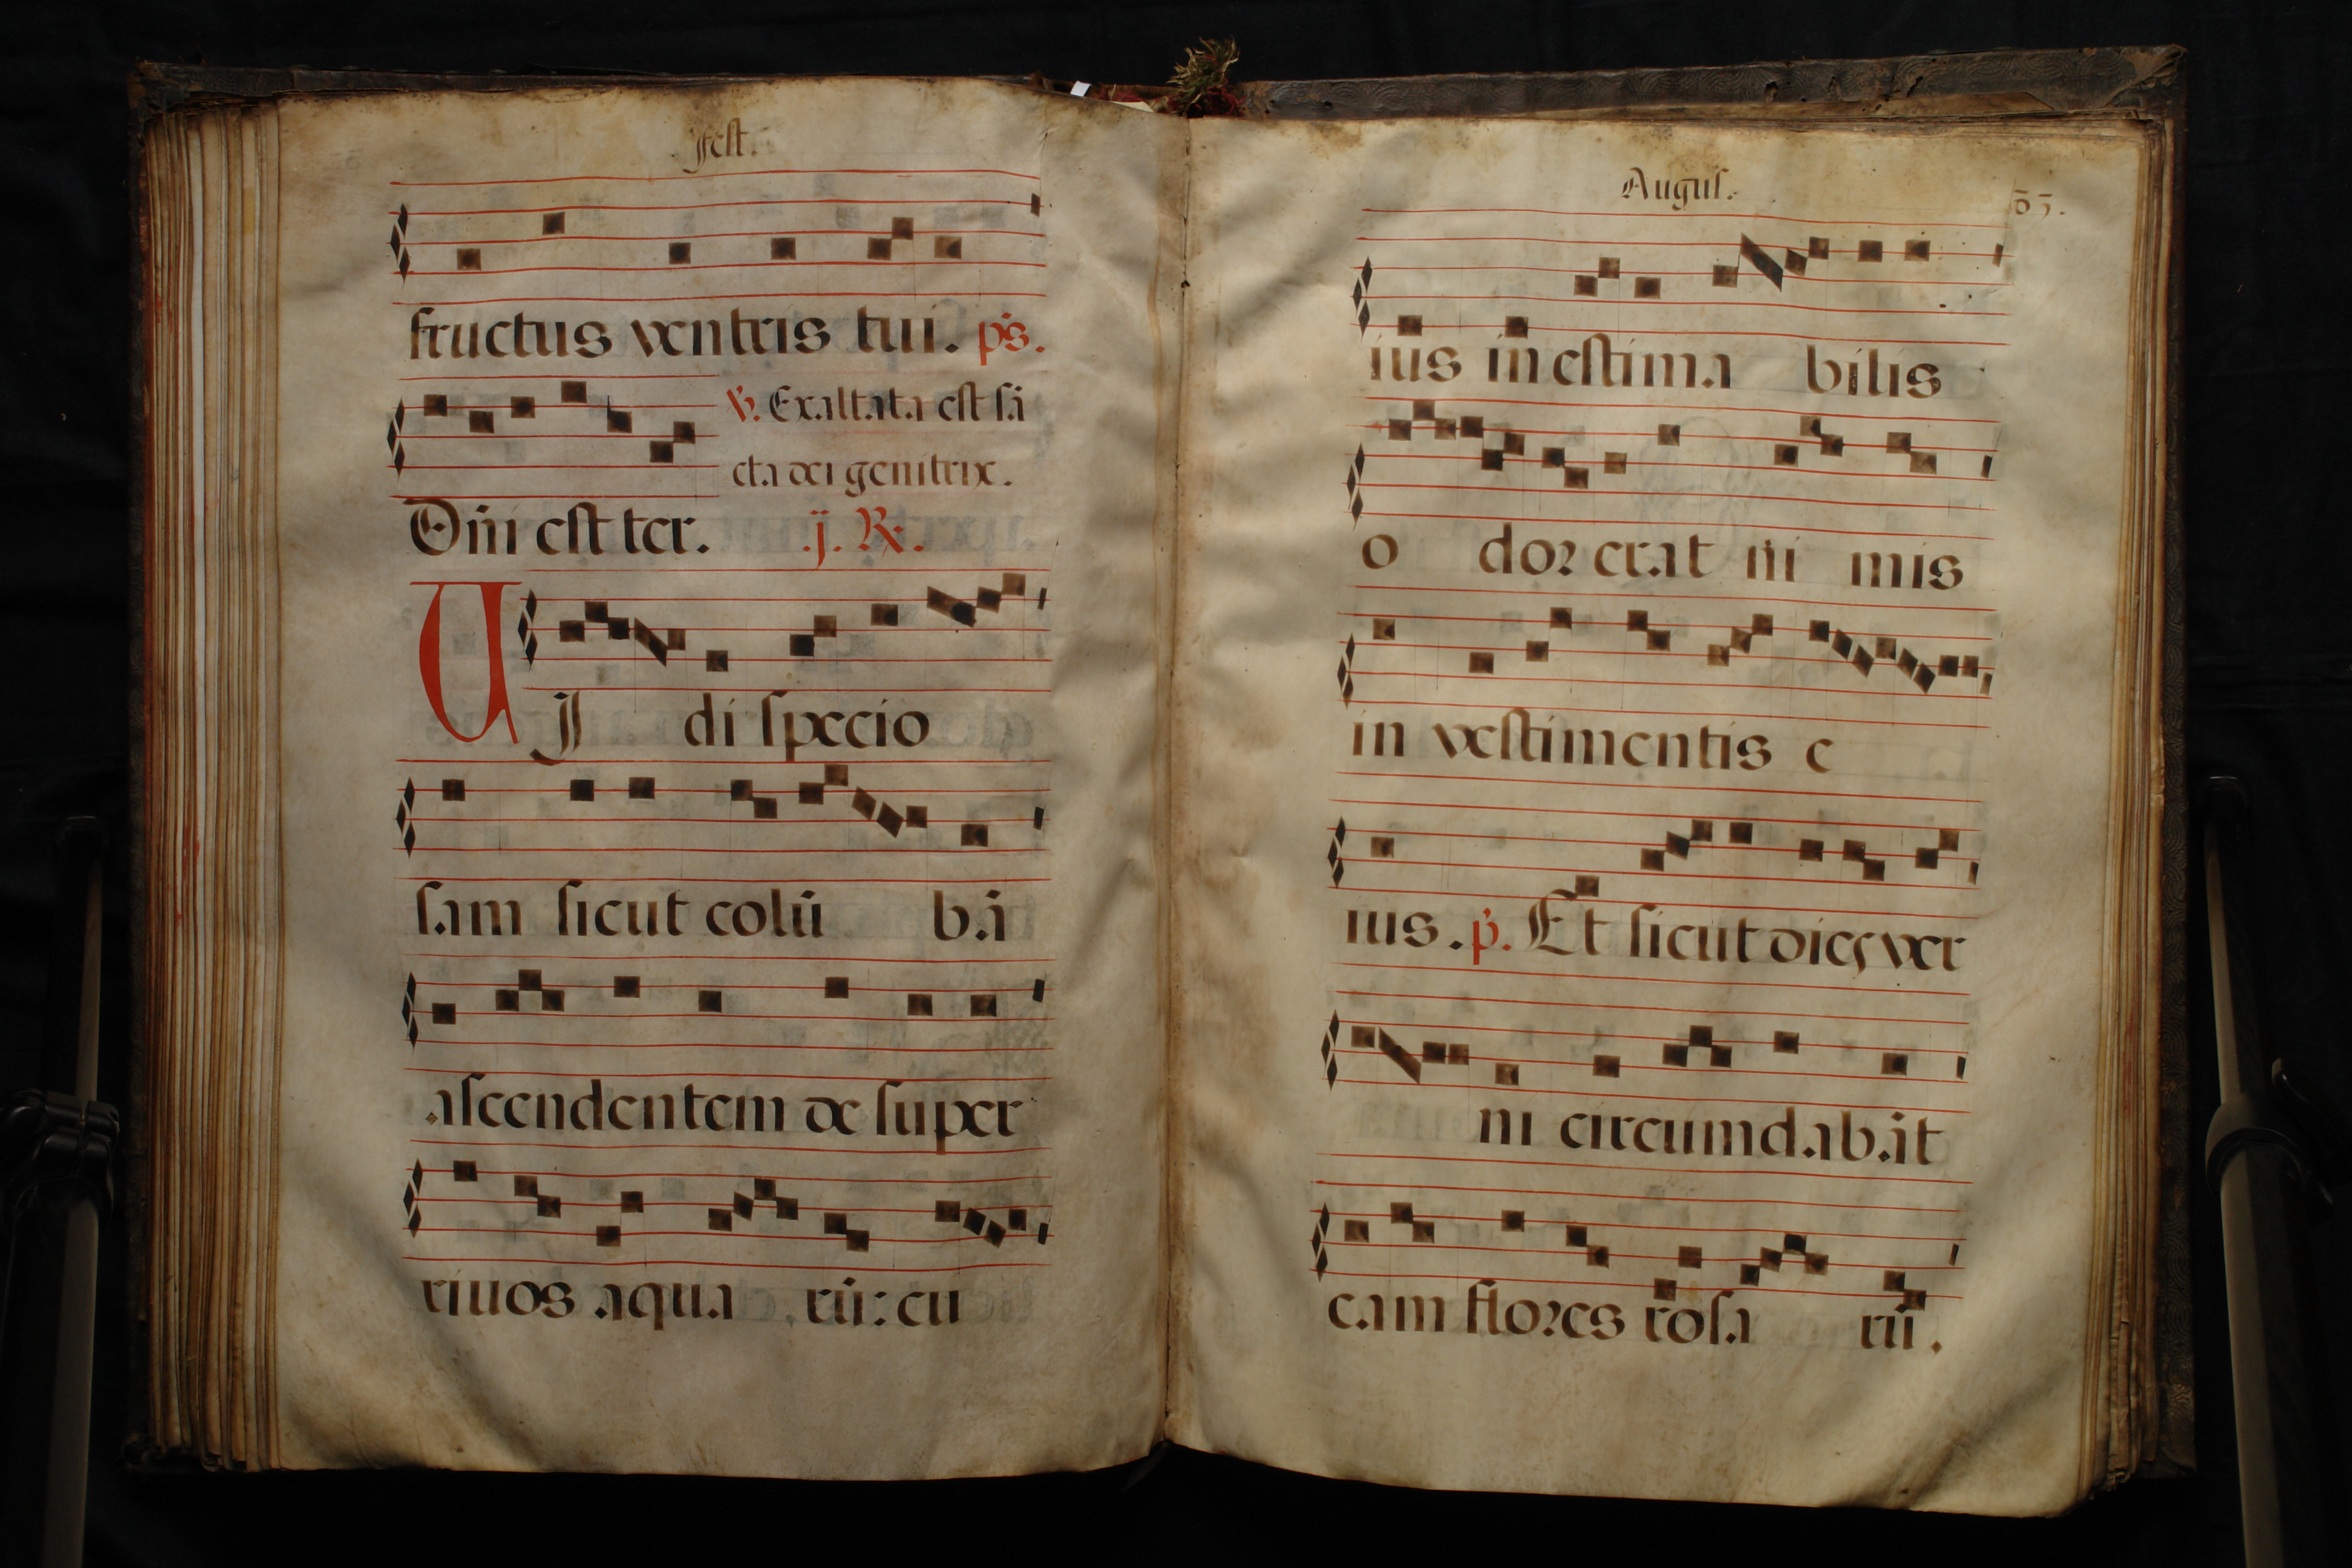 fest.
fructus ventris tui. ps.
℣. Exaltata est sā
cta dei genitrix.
Dñi est ter. .ij. ℟.
UJ di specio
sam sicut colū ba
ascendentem de super
riuos aqua rū: cu
Augus.
ius inestima bilis
o dor erat ni mis
in vestimentis e
ius. p. Et sicut dies ver
ni circumdabat
eam flores rosa rū.